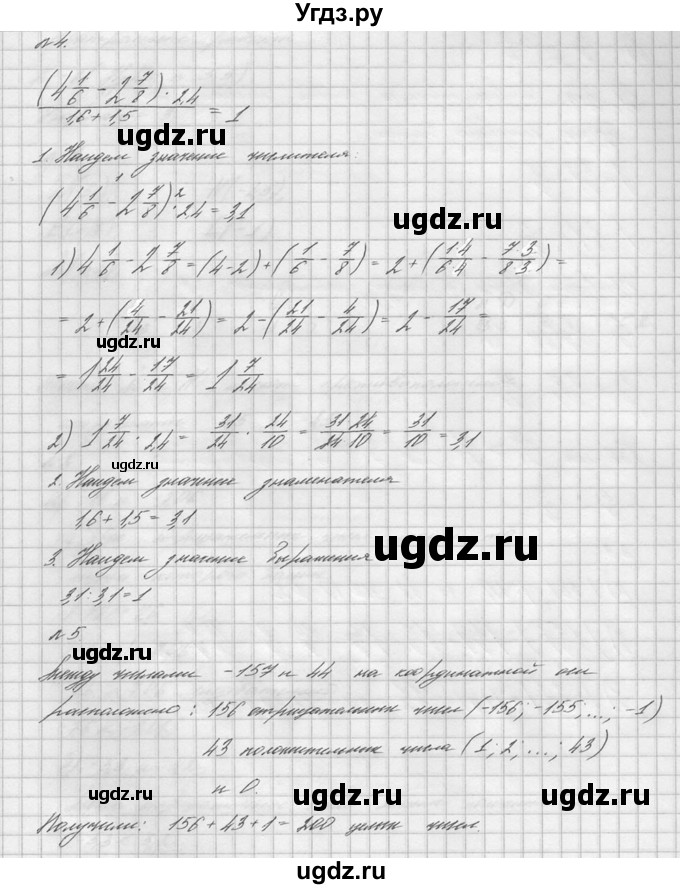 Угдз.ру
№4.
(4 1/6 − 2 7/8) · 2,4 / 1,6 + 1,5 = 1
ugdz.ru
1. Найдем значение числителя:
(4 1/6 −¹ 2 7/8) ·² 2,4 = 3,1
ugdz.ru
1) 4 1/6 − 2 7/8 = (4−2) + (1/6 − 7/8) = 2 + (1·4/6·4 − 7·3/8·3) =
= 2 + (4/24 − 21/24) = 2 − (21/24 − 4/24) = 2 − 17/24 =
ugdz.ru
= 1 24/24 − 17/24 = 1 7/24
2) 1 7/24 · 2,4 = 31/24 · 24/10 = 31·24/24·10 = 31/10 = 3,1
ugdz.ru
2. Найдем значение знаменателя
1,6 + 1,5 = 3,1
ugdz.ru
3. Найдем значение выражения
3,1 : 3,1 = 1
№5
ugdz.ru
Между числами −157 и 44 на координатной оси
расположено: 156 отрицательных чисел (−156; −155; ...; −1)
43 положительных числа (1; 2; ...; 43)
и 0.
ugdz.ru ugdz.ru
Получили: 156 + 43 + 1 = 200 целых чисел.
ugdz.ru